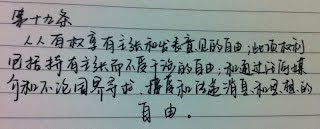 第十九条
人人有权享有主张和发表意见的自由；此项权利
包括持有主张而不受干涉的自由；和通过任何媒
介和不论国界寻求、接受和传递消息和思想的
自由。